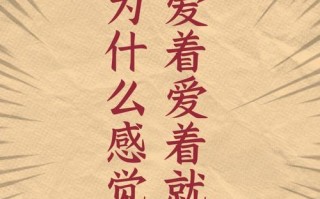 为什么感觉
爱着爱着就